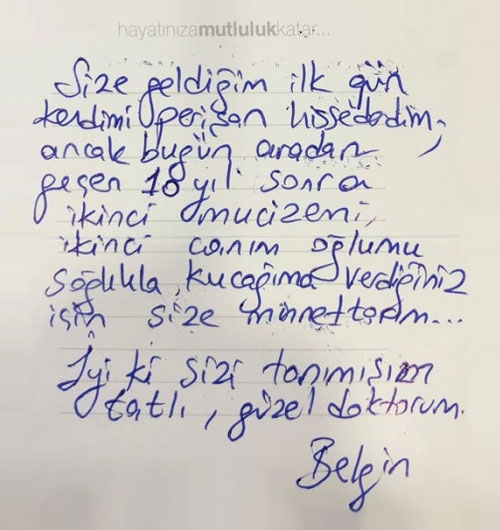 hayatınızamutlulukkatar...
Size geldiğim ilk gün
kendimi perişan hissededim,
ancak bugün aradan
geçen 18 yıl sonra
ikinci mucizemi,
ikinci canım oğlumu
sağlıkla kucağıma verdiğiniz
için size minnettarım...
İyi ki sizi tanımışım
tatlı, güzel doktorum.
Belgin